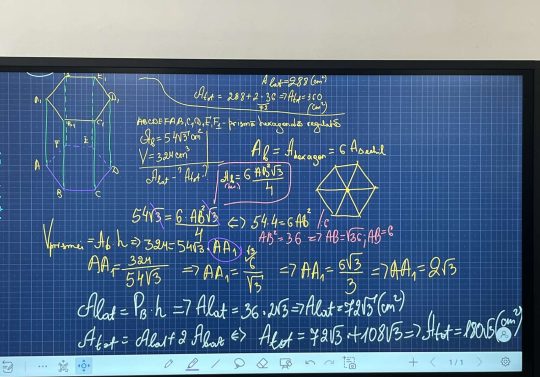 A lat = 288 (cm²)
A tot = 288 + 2·36 ⇒ A tot = 360 (cm²)
ABCDEFA₁B₁C₁D₁E₁F₁ - prismă hexagonală regulată
Ab = 54√3 cm²
V = 324 cm³
A lat - ? A tot - ?
Ab = A hexagon = 6 A
Ab = 6 AB²√3 / 4
54√3 = 6·AB²√3 / 4 ⇔ 54·4 = 6AB² |:6
AB² = 36 ⇒ AB = √36; AB = 6
V prismei = Ab·h ⇒ 324 = 54√3·AA₁
AA₁ = 324 / 54√3 ⇒ AA₁ = 6 / √3 ⇒ AA₁ = 6√3 / 3 ⇒ AA₁ = 2√3
A lat = P B·h ⇒ A lat = 36·2√3 ⇒ A lat = 72√3 (cm²)
A tot = A lat + 2 A ⇔ A tot = 72√3 + 108√3 ⇒ A tot = 180√3 (cm²)
A₁
B₁
C₁
D₁
E₁
A
B
C
D
E
F
1/1